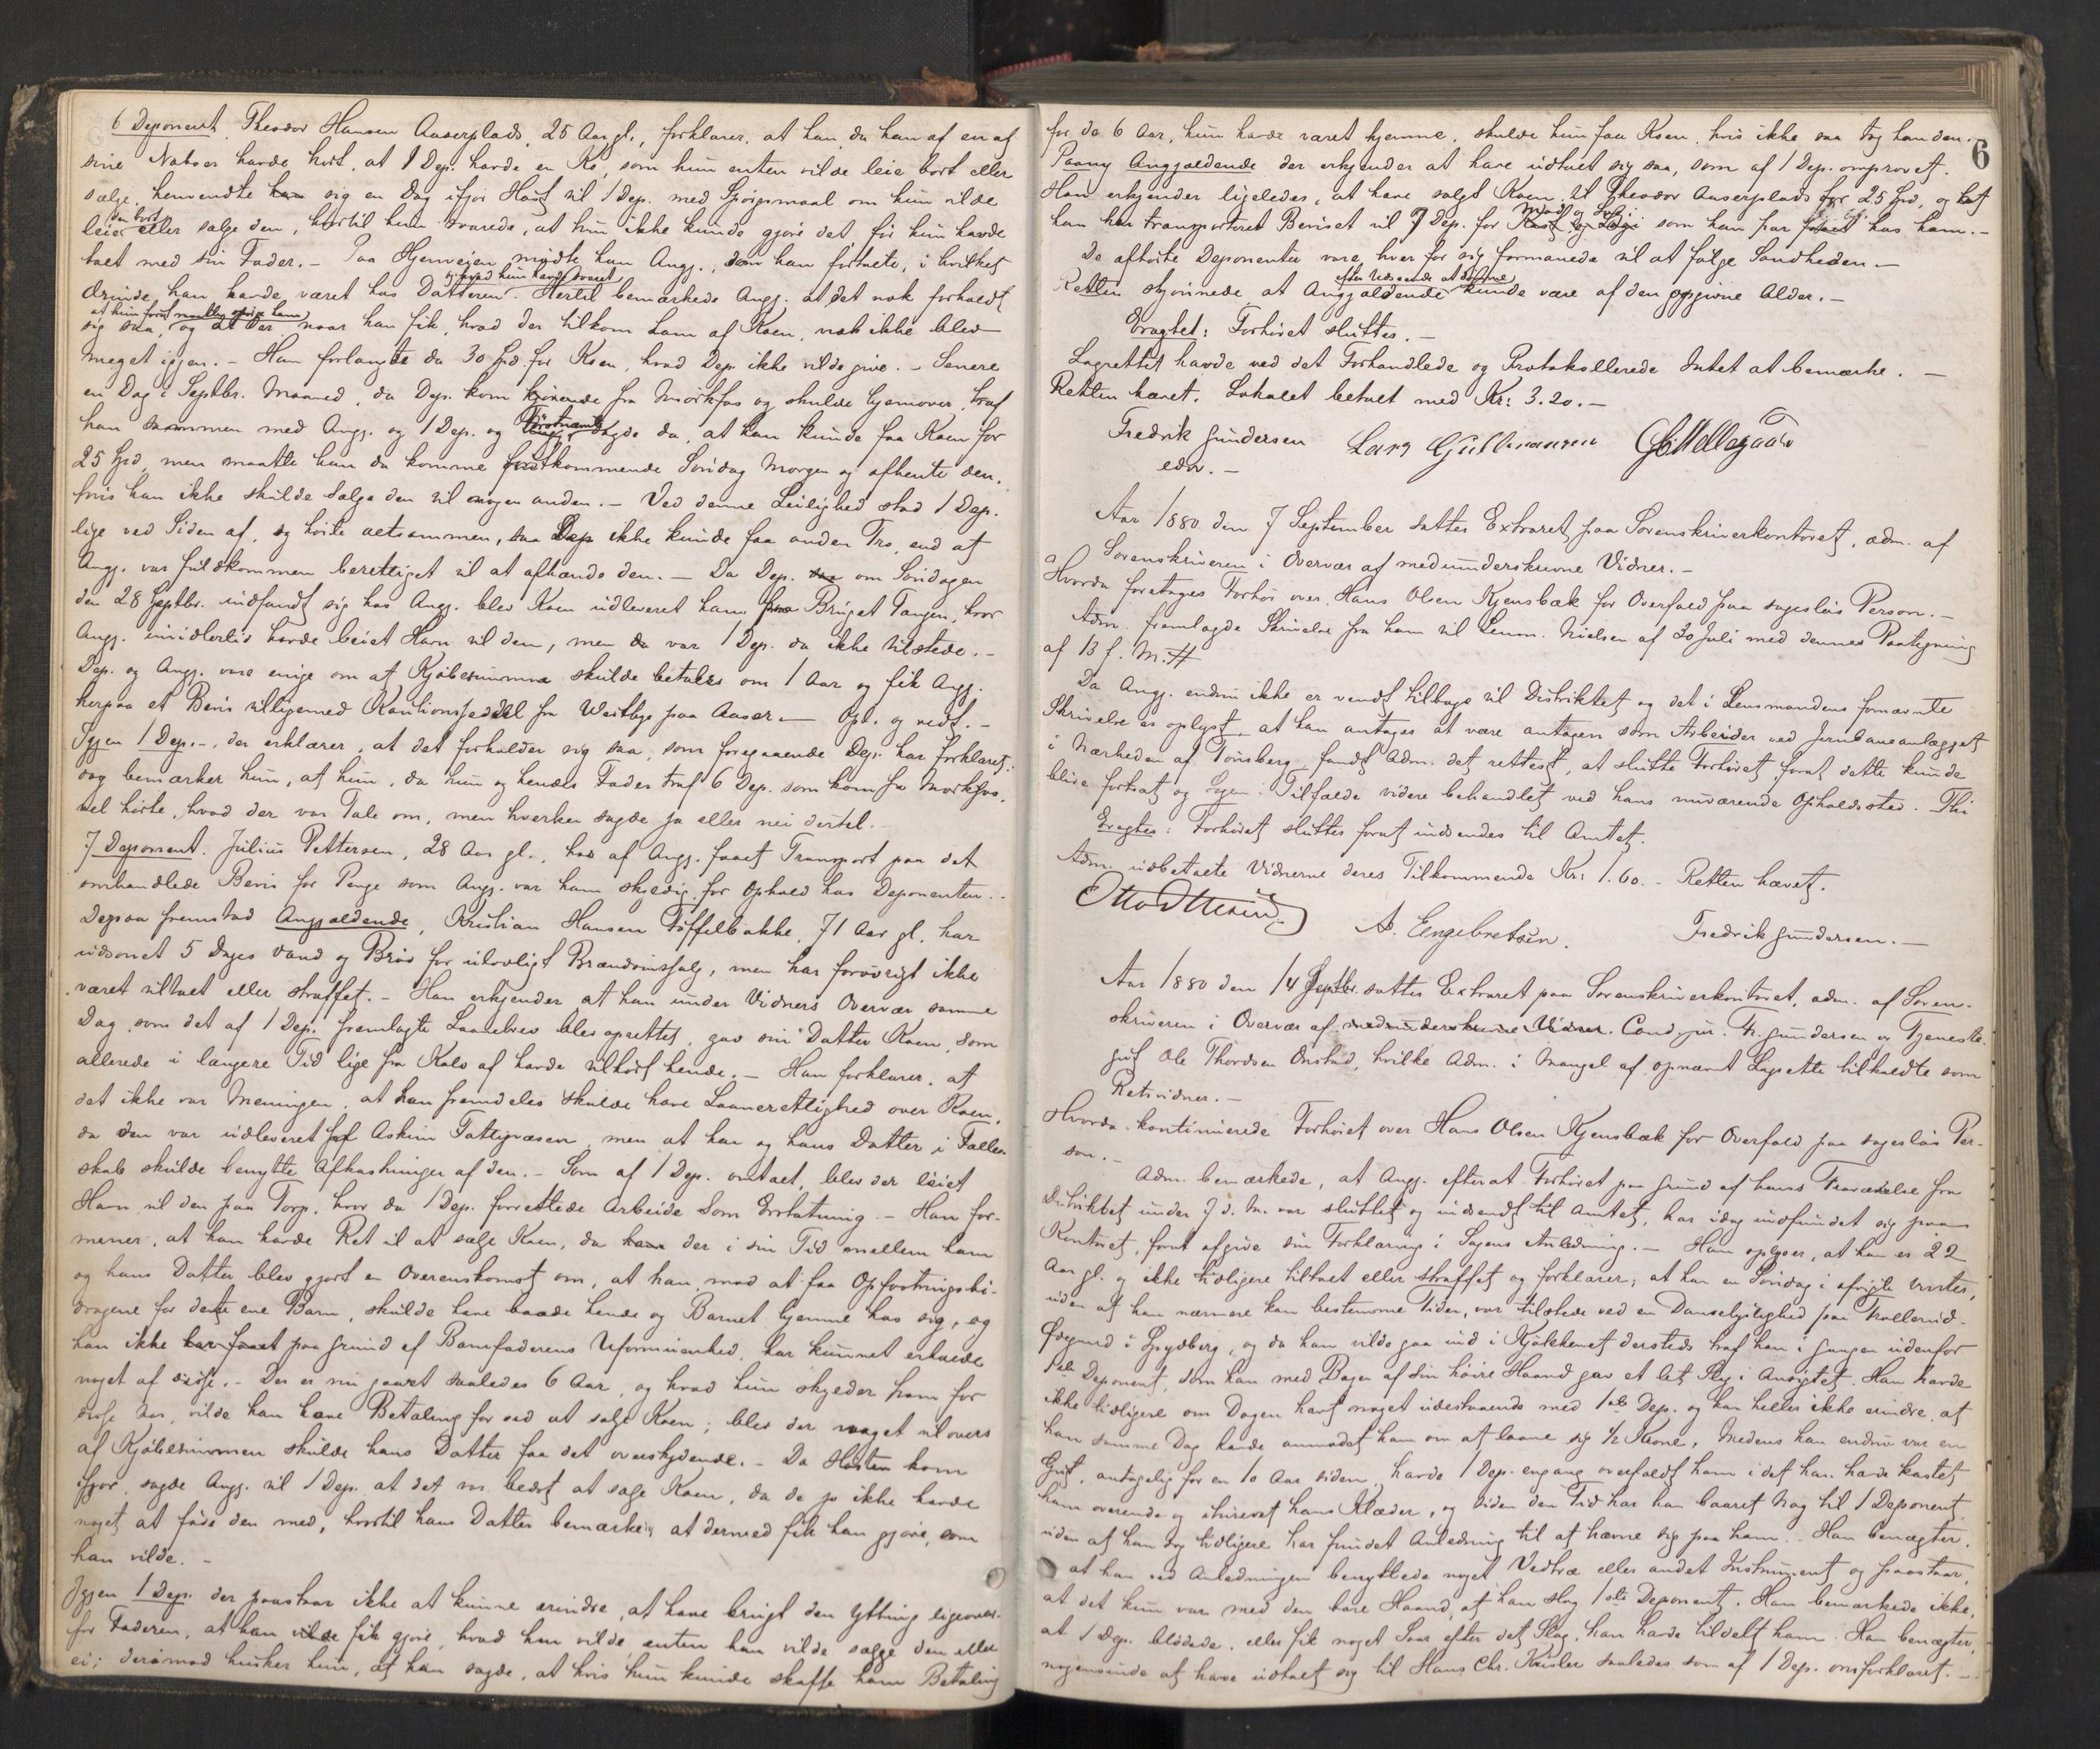 6 Deponent. Theodor Hansen Aaserplads, 25 Aar gl., forklarer, at han, da han af en af
sine Naboer havde hørt, at 1 Dep. havde en Ko, som hun enten vilde leie bort eller
sælge, henvendte han sig en Dag ifjor Høst til 1 Dep. med Spørgsmaal om hun vilde
leie den bort eller sælge den, hvortil hun svarede, at hun ikke kunde gjøre det før hun havde
talt med sin Fader. – Paa Hjemveien mødte han Angj., som han fortalte, i hvilket
Ærinde han havde været hos Datteren og hvad hun havde svaret. Hertil bemærkede Angj. at det nok forholdt
sig saa, at hun først maatte spørge ham og at der naar han fik, hvad der tilkom ham af Koen, nok ikke blev
meget igjen. – Han forlangte da 30 Spd for Koen, hvad Dep. ikke vilde give. – Senere
en Dag i Septbr. Maaned, da Dep. kom kjørende fra Mørkfos og skulde hjemover, traf
han sammen med Angj. og 1 Dep. og Førstnævnte sagde da, at han kunde faa Koen for
25 Spd, men maatte han da komme førstkommende Søndag Morgen og afhente den,
hvis han ikke skulde sælge den til nogen anden. – Ved denne Leilighed stod 1 Dep.
lige ved Siden af, og hørte altsammen, saa Dep. ikke kunde faa anden Tro, end at
Angj. var fuldkommen berettiget til at afhænde den. – Da Dep. saa om Søndagen
den 28 Septbr. indfandt sig hos Angj. blev Koen udleveret ham fra Bruget Tangen, hvor
Angj. imidlertid havde leiet Havn til den, men da var 1 Dep. da ikke tilstede. –
Dep. og Angj. vare enige om at Kjøbesummen skulde betales om 1 Aar og fik Angj.
herpaa et Bevis tilligemed Kautionsseddel fra Westbye paa Aaser. – Opl. og vedt. –
Igjen 1 Dep. –, der erklærer, at det forholder sig saa, som foregaaende Dep. har forklaret;
dog bemærker hun, at hun, da hun og hendes Fader traf 6 Dep. som kom fra Mørkfos,
vel hørte, hvad der var Tale om, men hverken sagde ja eller nei dertil. –
7 Deponent. Julius Pettersen, 28 Aar gl., har af Angj. faaet Transport paa det
omhandlede Bevis for Penge som Angj. var ham skyldig for Ophold hos Deponenten. –
Derpaa fremstod Angjældende, Kristian Hansen Tøffelbakke, 71 Aar gl. har
udsonet 5 Dages Vand og Brød for ulovligt Brændevinssalg, men har forøvrigt ikke
været tiltalt eller straffet. – Han erkjender at han under Vidners Overvær samme
Dag, som det af 1 Dep. fremlagte Laanebrev blev oprettet, gav sin Datter Koen, som
allerede i længere Tid lige fra Kalv af havde tilhørt hende. – Han forklarer, at
det ikke var Meningen, at han fremdeles skulde have Laanerettighed over Koen,
da den var udleveret af Askim Fattigvæsen, men at han og hans Datter i Fælles-
skab skulde benytte Afkastninger af den. – Som af 1 Dep. omtalt, blev der leiet
Havn til den paa Torp, hvor da 1 Dep. forrettede Arbeide som Erstatning. – Han for-
mener, at han havde Ret til at sælge Koen, da der i sin Tid mellem ham
og hans Datter blev gjort en Overenskomst om, at han mod at faa Opfostringsbi-
dragene for dette ene Barn, skulde have baade hende og Barnet hjemme hos sig, og
han ikke har faaet paa Grund af Barnefaderens Uformuenhed, har kunnet erholde
noget af disse. – Der er nu gaaet saaledes 6 Aar, og hvad hun skylder ham for
disse Aar, vilde han have Betaling for ved at sælge Koen; blev der noget tilovers
af Kjøbesummen skulde hans Datter faa det overskydende. – Da Høsten kom
ifjor, sagde Angj. til 1 Dep. at det var bedst at sælge Koen, da de jo ikke havde
noget at føde den med, hvortil hans Datter bemærkede, at dermed fik han gjøre, som
han vilde. –
Igjen 1 Dep. der paastaar ikke at kunne erindre, at have brugt den Yttring ligeover-
for Faderen, at han vilde fik gjøre, hvad han vilde, enten han vilde sælge den eller
ei; derimod husker hun, at han sagde, at hvis hun kunde skaffe ham Betaling
6
for de 6 Aar, hun havde været hjemme, skulde hun faa Koen, hvis ikke saa tog han den. –
Paany Angjældende der erkjender at have udtalt sig saa, som af 1 Dep. omprovet.
Han erkjender ligeledes, at have solgt Koen til Theodor Aaserplads for 25 Spd, og at
han har transporteret Beviset til 7 Dep. for Mad og Logi som han har faaet hos ham. –
De afhørte Deponenter vare, hver for sig formanede til at følge Sandheden. –
Retten skjønnede, at Angjældende efter Udseende at dømme kunde være af den opgivne Alder. –
Eragtet: Forhøret sluttes. –
Lagrettet havde ved det Forhandlede og Protokollerede Intet at bemærke. –
Retten hævet. Lokalet betalt med Kr: 3.20. –
Fredrik Gundersen Lars Gulbrandsen
edsv. –
Aar 1880 den 7 September sattes Extraret paa Sorenskriverkontoret, adm. af
Sorenskriveren i Overvær af medunderskrevne Vidner. –
Hvorda foretoges Forhør over Hans Olsen Kjensbæk for Overfald paa sagesløs Person. –
Adm. fremlagde Skrivelse fra ham til Lensm. Nielsen af 30 Juli med dennes Paategning
af 13 f. M.
Da Angj. endnu ikke er vendt tilbage til Distriktet og det i Lensmandens fornævnte
Skrivelse er oplyst, at han antages at være antagen som Arbeider ved Jernbaneanlægget
i Nærheden af Tønsberg, fandt Adm. det rettest, at slutte Forhøret, forat dette kunde
blive fortsat og Sagen i Tilfælde videre behandlet ved hans nuværende Opholdssted. Thi
Eragtes: Forhøret sluttes forat indsendes til Amtet.
Adm. udbetalte Vidnerne deres Tilkommende Kr: 1.60. – Retten hævet.
A. Engebretsen. Fredrik Gundersen. –
Aar 1880 den 14 Septbr. sattes Extraret paa Sorenskriverkontoret, adm. af Soren-
skriveren i Overvær af medunderskrevne Vidner. Cand. jur. Fr. Gundersen og Tjeneste-
gut Ole Thordsen Onstad, hvilke Adm. i Mangel af opnævnt Lagrette tilkaldte som
Retsvidner. –
Hvorda kontinuerede Forhøret over Hans Olsen Kjensbæk for Overfald paa sagesløs Per-
son. –
Adm. bemærkede, at Angj. efterat Forhøret paa Grund af hans Fraværelse fra
Distriktet under 7 d. M. var sluttet og indsendt til Amtet, har idag indfundet sig paa
Kontoret, forat afgive sin Forklaring i Sagens Anledning. – Han oplyser, at han er 22
Aar gl. og ikke tidligere tiltalt eller straffet og forklarer, at han en Søndag i afvigte Vinter,
uden at han nærmere kan bestemme Tiden, var tilstede ved en Danselystighed paa
Ødegaard i Spydberg, og da han vilde gaa ind i Kjøkkenet dersteds traf han i Gangen udenfor
1ste Deponent, som han med Bagen af sin høire Haand gav et let Slag i Ansigtet. Han havde
ikke tidligere om Dagen havt noget udestaaende med 1ste Dep. og kan heller ikke erindre, at
han samme Dag havde anmodet ham om at laane sig 1/2 Krone. Medens han endnu var en
Gut, antagelig for en 10 Aar siden, havde 1 Dep. engang overfaldt ham i det han havde kastet
ham overende og iturevet hans Klæder, og siden den Tid har han baaret Nag til 1 Deponent,
uden at han dog tidligere har fundet Anledning til at hævne sig paa ham. – Han benægter,
at han ved Anledningen benyttede noget Vedtræ eller andet Instrument og paastaar,
at det kun var med den bare Haand, at han slog 1ste Deponent. Han bemærkede ikke,
at 1 Dep. blødede, eller fik noget Saar efter det Slag, han havde tildelt ham. Han benægter,
nogensinde at have udtalt sig til Hans Chr. saaledes som af 1 Dep. omforklaret. –